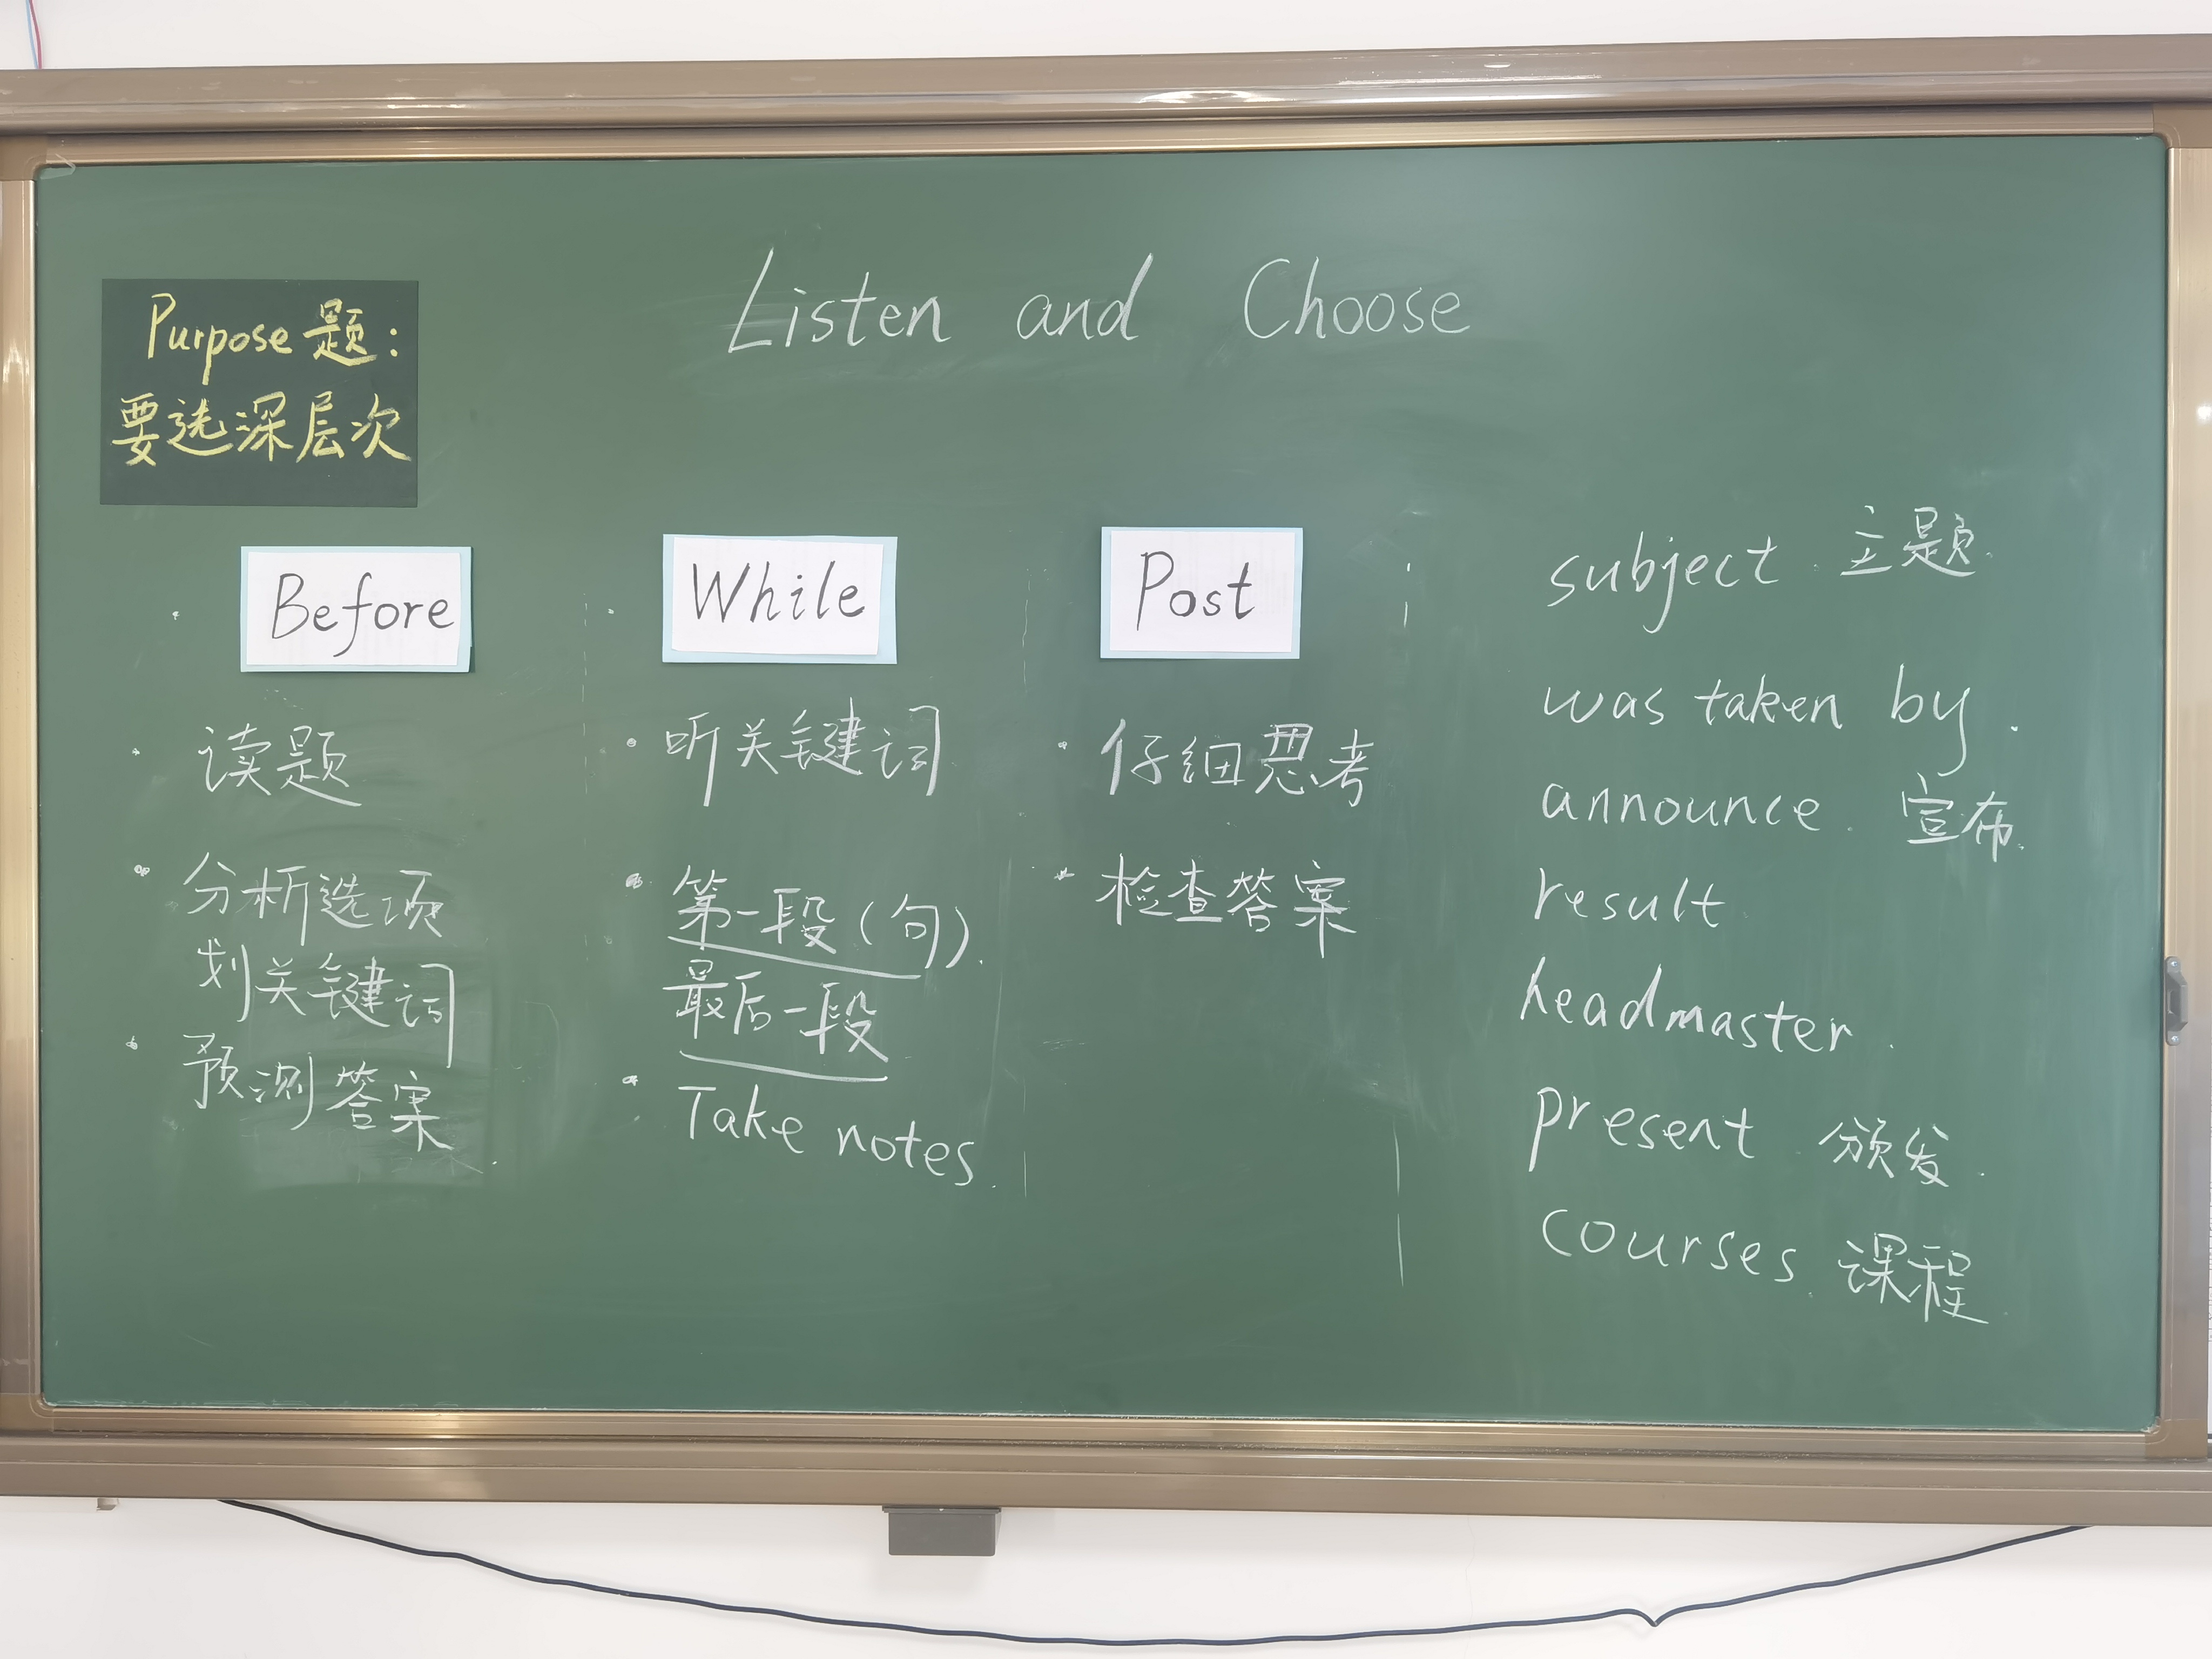 Listen and Choose
Purpose题:
要选深层次
Before
读题
分析选项
划关键词
预测答案
While
听关键词
第一段(句).
最后一段
Take notes.
Post
仔细思考
检查答案
subject 主题
was taken by
announce 宣布
result
headmaster
present 颁发
courses 课程